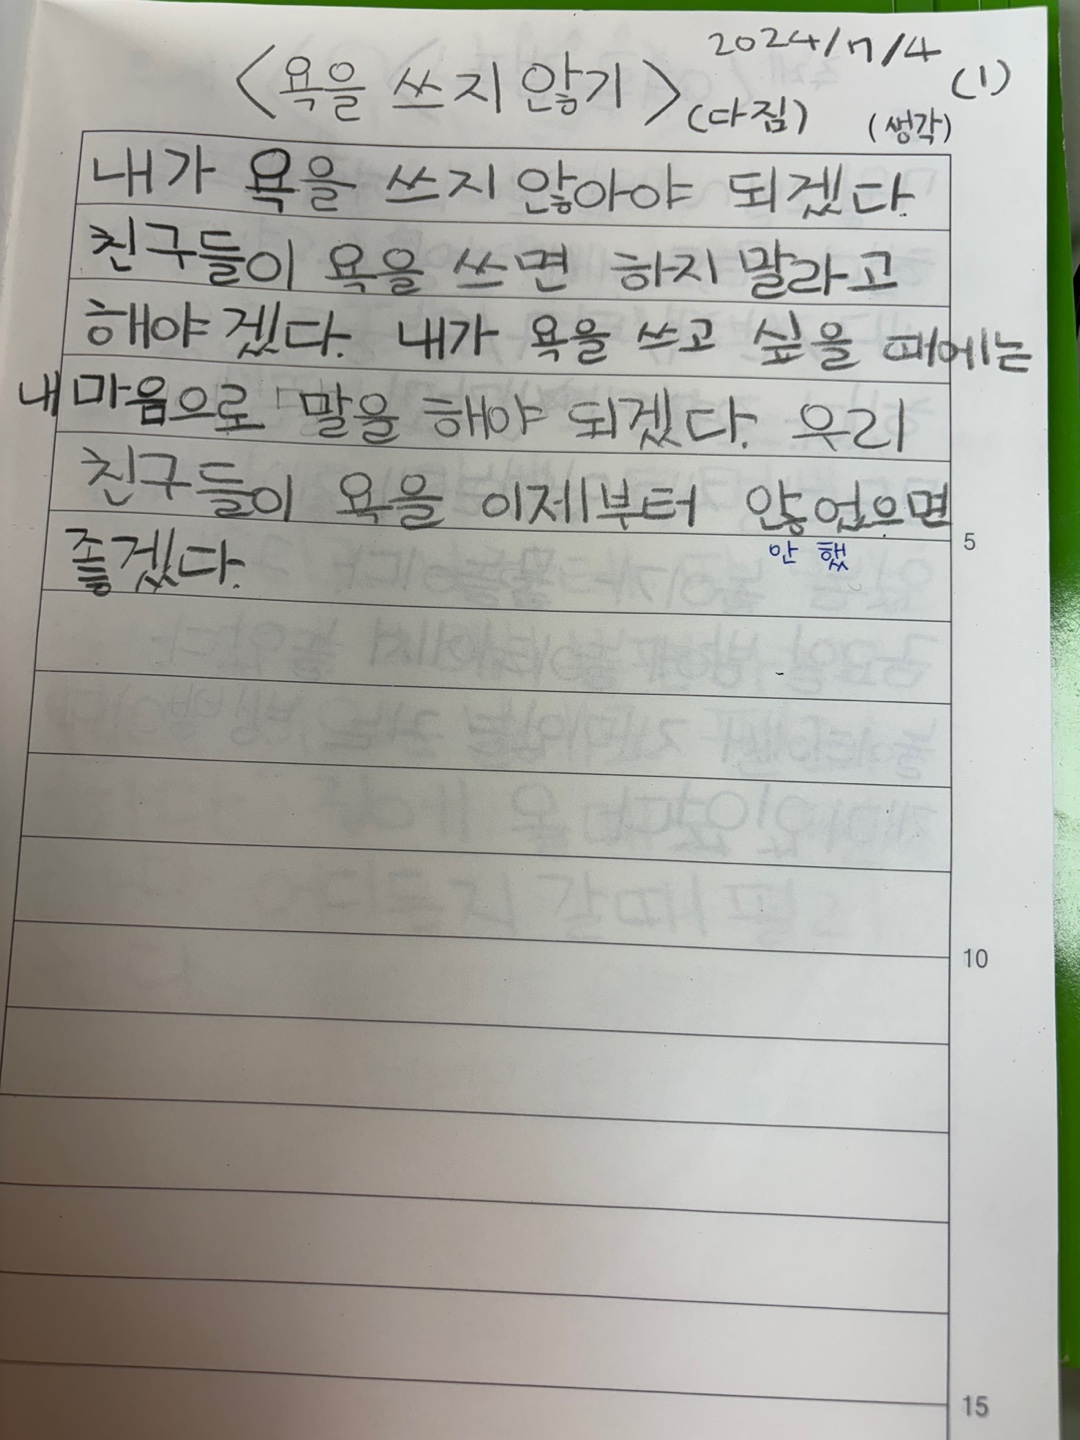 2024/7/4
<욕을 쓰지 않기> (1)
(다짐) (생각)
내가 욕을 쓰지 않아야 되겠다.
친구들이 욕을 쓰면 하지 말라고
해야겠다. 내가 욕을 쓰고 싶을 때에는
내 마음으로 말을 해야 되겠다. 우리
친구들이 욕을 이제부터 않었으면
안 했
좋겠다.
5
10
15